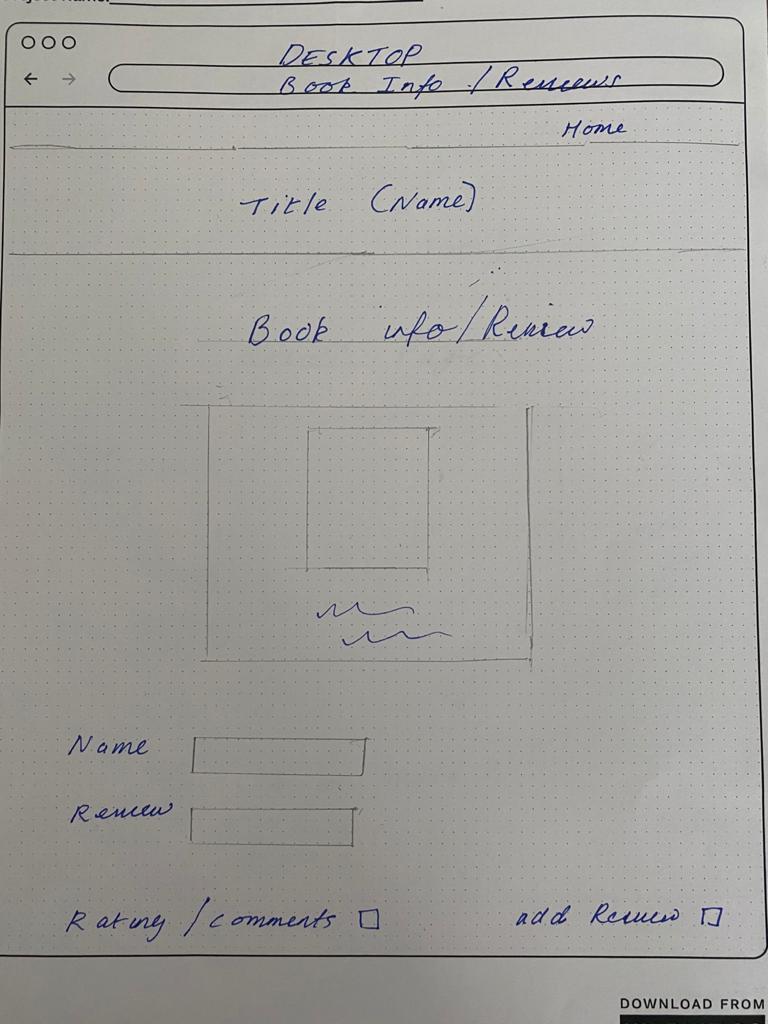 DESKTOP
Book Info / Reviews
Home
Title (Name)
Book info/Review
Name
Review
Rating / comments
add Review
DOWNLOAD FROM